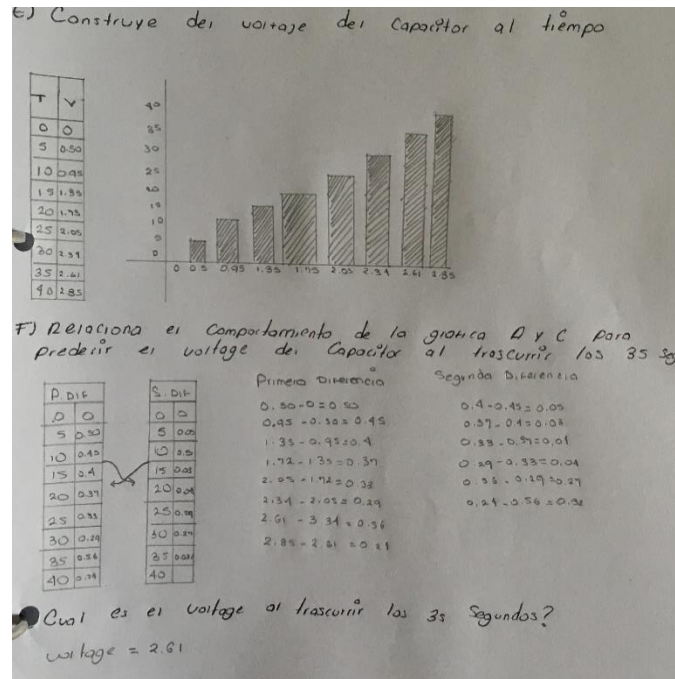 E) Construye del voltaje del Capacitor al tiempo
T V
0 0
5 0.50
10 0.95
15 1.35
20 1.75
25 2.05
30 2.34
35 2.61
40 2.85
40
35
30
25
20
15
10
5
0
0 0.5 0.95 1.35 1.75 2.05 2.34 2.61 2.85
F) Relaciona el Comportamiento de la grafica A y C para
predecir el voltage del Capacitor al trascurrir los 35 seg
P. DIF
0 0
5 0.50
10 0.45
15 0.4
20 0.37
25 0.33
30 0.29
35 0.56
40 0.24
S. DIF
0 0
5 0.05
10 0.5
15 0.03
20 0.04
25 0.04
30 0.27
35
40
Primera Diferencia
0.50-0=0.50
0.95-0.50=0.45
1.35-0.95=0.4
1.72-1.35=0.37
2.05-1.72=0.33
2.34-2.05=0.29
2.61-3.34=0.56
2.85-2.61=0.24
Segunda Diferencia
0.4-0.45=0.05
0.37-0.4=0.03
0.33-0.37=0.04
0.29-0.33=0.04
0.56-0.29=0.27
0.24-0.56=0.32
Cual es el voltage al trascurrir los 35 Segundos?
voltage = 2.61